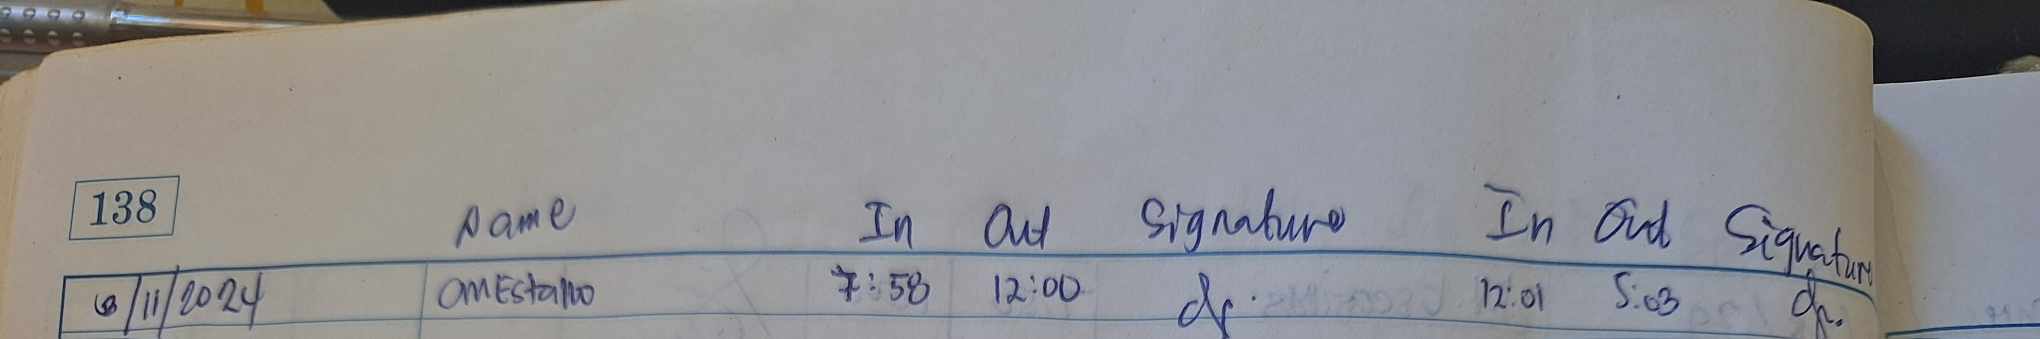 138
Name In Out Signature In Out Signature
/11/2024 7:58 12:00 12:01 5:03